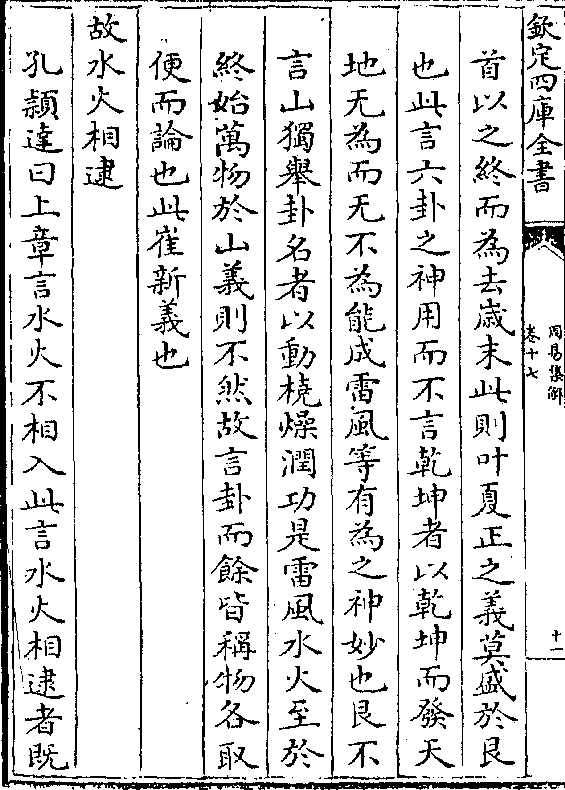 欽定四庫全書
周易集解
卷十七
十一
首以之終而為去歳末此則叶夏正之義莫盛於艮
也此言六卦之神用而不言乾坤者以乾坤而發天
地无為而无不為能成雷風等有為之神妙也艮不
言山獨舉卦名者以動橈燥潤功是雷風水火至於
終始萬物於山義則不然故言卦而餘皆稱物各取
便而論也此崔新義也
故水火相逮
孔頴達曰上章言水火不相入此言水火相逮者既